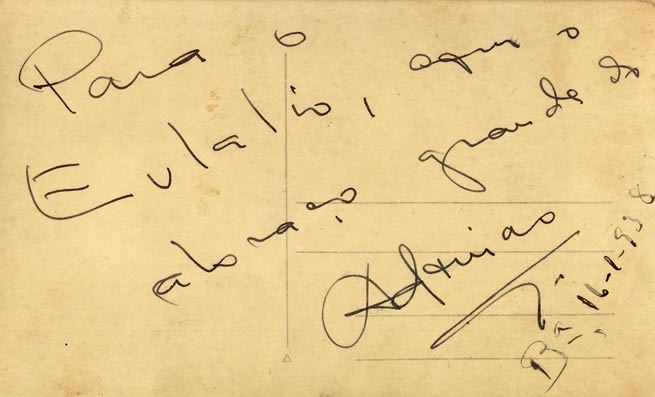 Para o
Eulalio, aqui o
abraço grande do
Adonias
Bª, 16-1-938